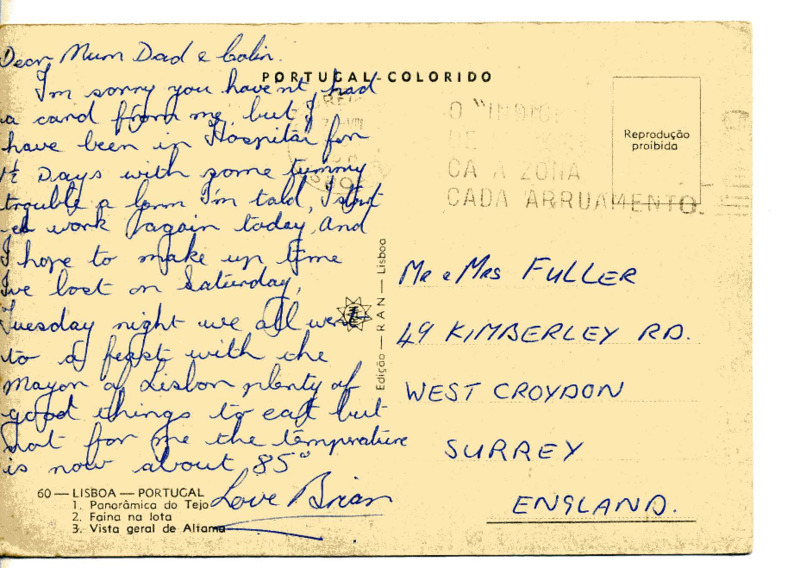 Dear Mum Dad & Colin.
I'm sorry you haven't had
a card from me, but I
have been in Hospital for
1½ Days with some tummy
trouble a Germ I'm told, I start
ed work again today, And
I hope to make up time
I've lost on Saturday,
Tuesday night we all went
to a feast with the
Mayor of Lisbon plenty of
good things to eat but
not for me the temperature
is now about 85°
Love Brian
60 — LISBOA — PORTUGAL
1. Panorâmica do Tejo
2. Faina na lota
3. Vista geral de Alfama
PORTUGAL-COLORIDO
Edição — R A N — Lisboa
O "INDIC
DE
CA A ZONA
CADA ARRUAMENTO.
Reprodução
proibida
Mr & Mrs FULLER
49 KIMBERLEY RD.
WEST CROYDON
SURREY
ENGLAND.